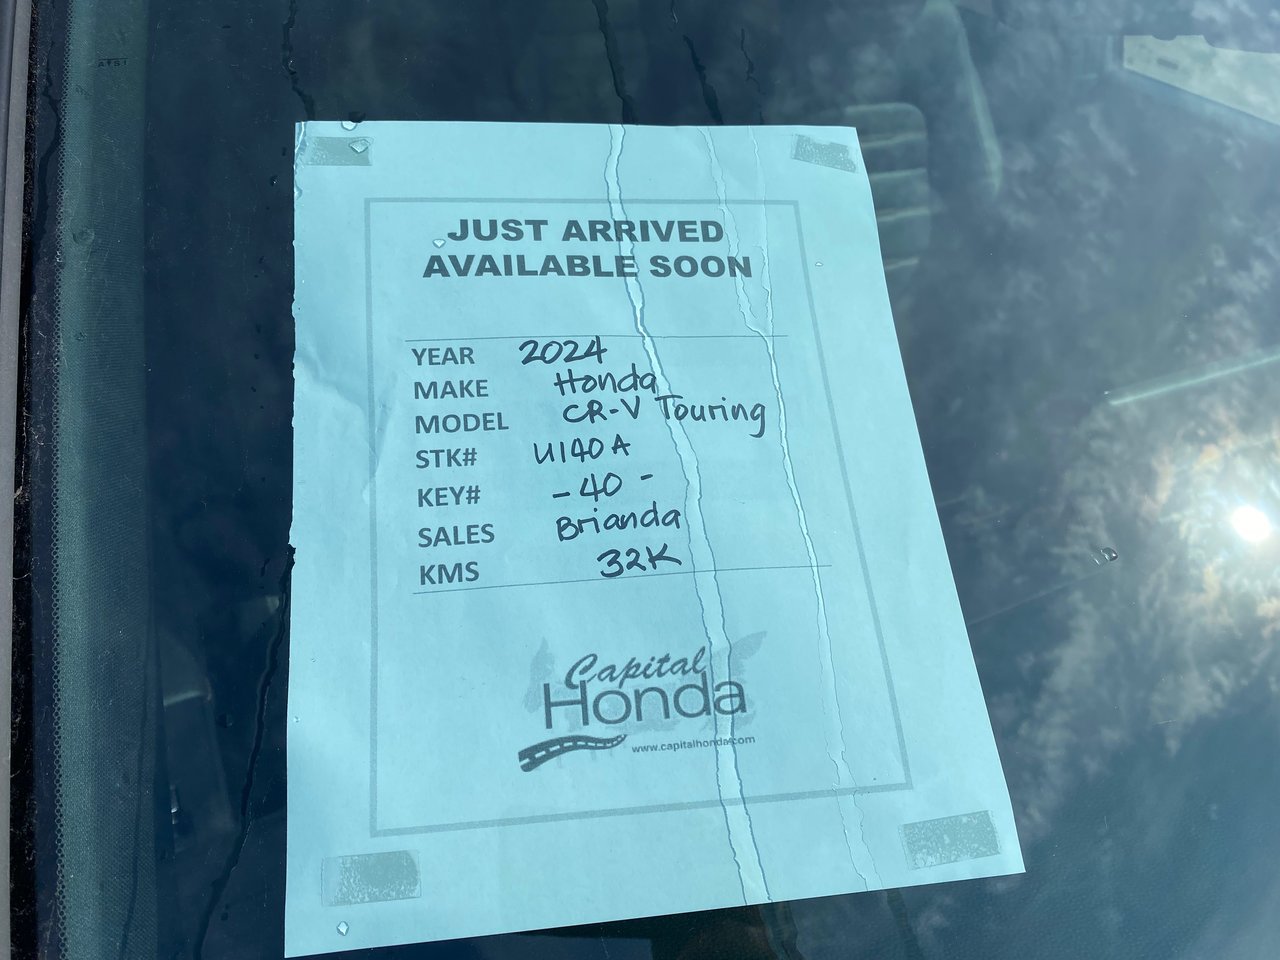 JUST ARRIVED
AVAILABLE SOON
YEAR 2024
MAKE Honda
MODEL CR-V Touring
STK# U140A
KEY# -40-
SALES Brianda
KMS 32K
Capital
Honda
www.capitalhonda.com